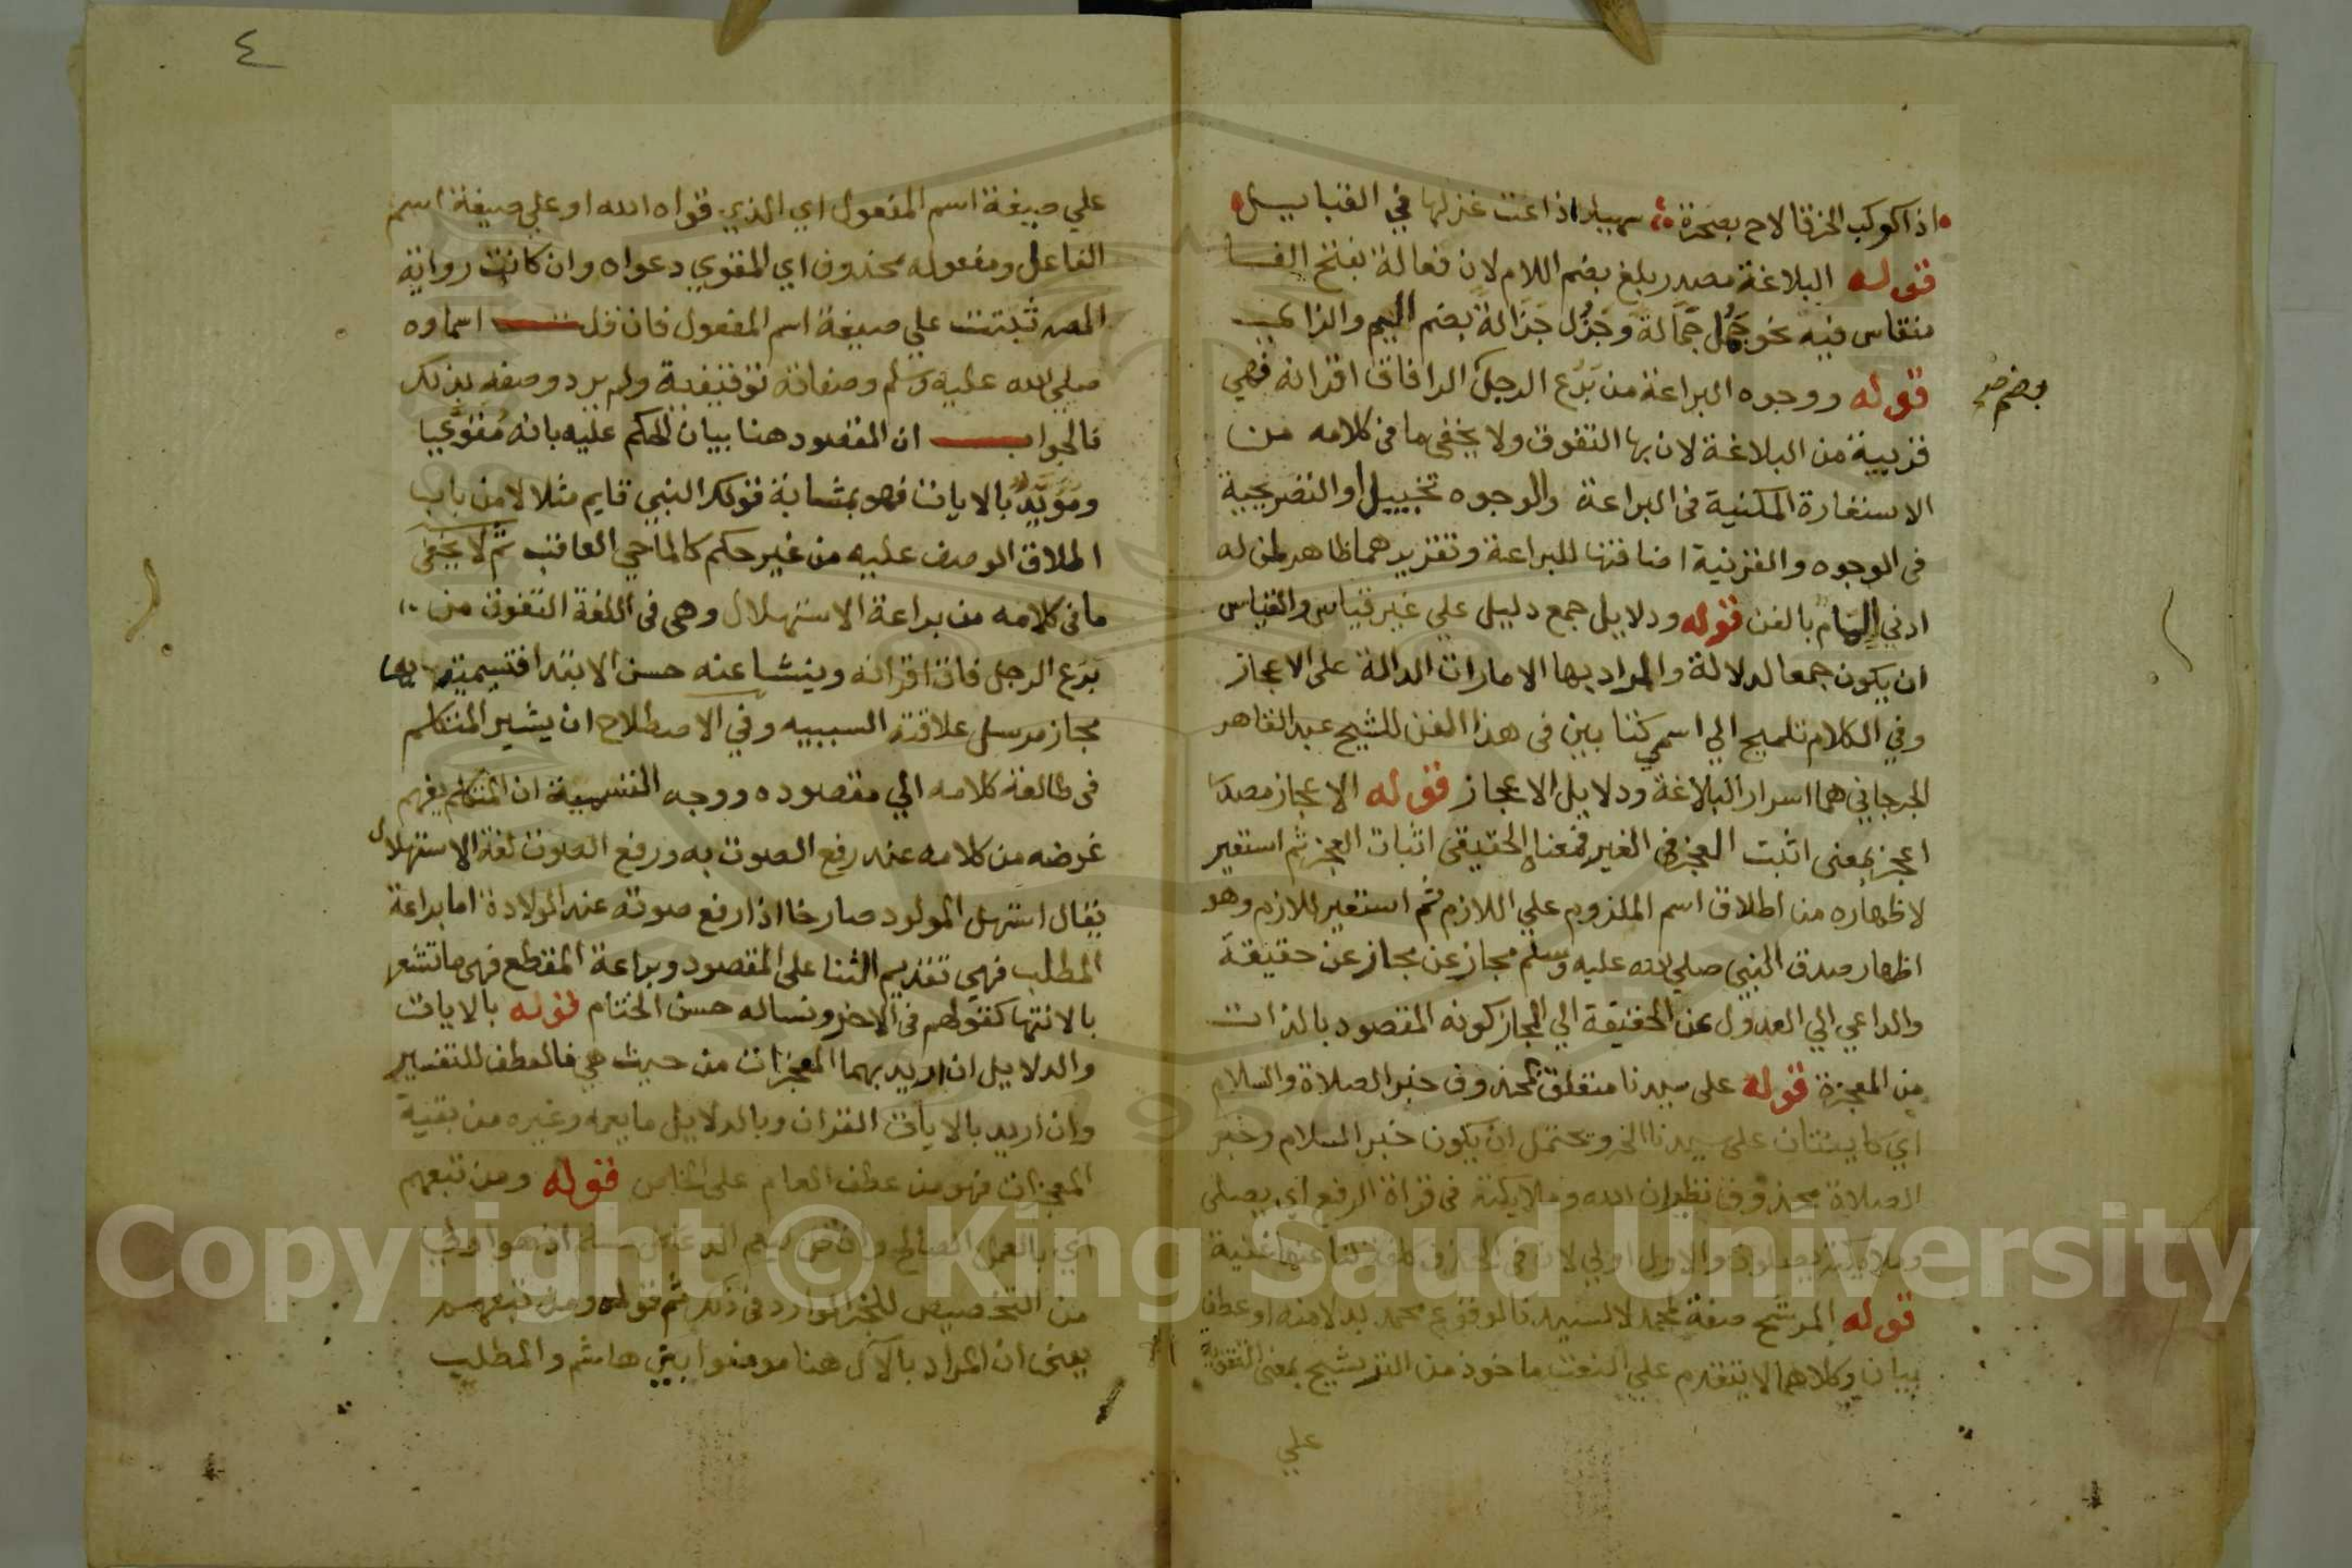 اذا كوكب الخرقا لاح بصحرة سهيل اذاعت غزلها في القبايسل
قوله البلاغة مصدر بلغ بضم اللام لان فعالة بفتح الفا
منقاس فيه نحو جمل جمالة وجزل جزالة بضم الميم والزاي
قوله ووجوه البراعة من برع الرجل اذا فاق اقرانه فهي
بضم
قريبة من البلاغة لان بها التفوق ولا يخفى ما في كلامه من
الاستعارة المكنية في البراعة والوجوه تخييل او التصريحية
في الوجوه والقرنية اضافتها للبراعة وتقريرهما ظاهر لمن له
ادني المام بالفن قوله ودلايل جمع دليل علي غير قياس والقياس
ان يكون جمعا لدلالة والمراد بها الامارات الدالة على الاعجاز
وفي الكلام تلميح الي اسمي كتابين في هذا الفن للشيح عبد القاهر
الجرجاني هما اسرار البلاغة ودلايل الاعجاز قوله الاعجاز مصدر
اعجز بمعنى اثبت العجز في الغير فمعناه الحقيقي اثبات العجز ثم استعير
لاظهاره من اطلاق اسم الملزوم علي اللازم ثم استعير للازم وهو
اظهار صدق النبي صلي الله عليه وسلم مجاز عن مجاز عن حقيقة
والداعي الي العدول عن الحقيقة الي المجاز كونه المقصود بالذات
من المعجزة قوله على سيدنا متعلق بمحذوف خبر الصلاة والسلام
اي كاينتان على سيدنا الخ ويحتمل ان يكون خبر السلام وخبر
الصلاة محذوف نظير ان الله وملايكته في قراة الرفع اي يصلي
وملايكته يصلون والاول اولي لان في الحذف كلفة لنا عنها غنية
قوله المرشح صفة لمحمد لا لسيدنا لوقوع محمد بدلا منه او عطف
بيان وكلاهما لا يتقدم علي النعت ماخوذ من الترشيح بمعنى التقوية
علي
٤
علي صيغة اسم المفعول اي الذي قواه الله او علي صيغة اسم
الفاعل ومفعوله محذوف اي المقوي دعواه وان كانت رواية
المص ثبتت علي صيغة اسم المفعول فان قلت اسماوه
صلي الله عليه وسلم وصفاته توقيفية ولم يرد وصفه بذلك
فالجواب ان المقصود هنا بيان الحكم عليه بانه مقوي
ومؤيد بالايات فهو بمثابة قولك النبي قايم مثلا لا من باب
اطلاق الوصف عليه من غير حكم كالماحي العاقب ثم لا يخفى
ما في كلامه من براعة الاستهلال وهي في اللغة التفوق من
برع الرجل فاق اقرانه وينشا عنه حسن الابتدا فتسميته بها
مجاز مرسل علاقته السببيه وفي الاصطلاح ان يشير المتكلم
في طالعة كلامه الي مقصوده ووجه التسمية ان المتكلم يفهم
غرضه من كلامه عند رفع الصوت به ورفع الصوت لغة الاستهلال
يقال استهل المولود صارخا اذا رفع صوته عند الولادة اما براعة
المطلب فهي تقديم الثنا على المقصود وبراعة المقطع فهي ما تشعر
بالانتها كقولهم في الاخر ونساله حسن الختام قوله بالايات
والدلايل ان اريد بهما المعجزات من حيث هي فالعطف للتفسير
وان اريد بالايات القران وبالدلايل ما يعمه وغيره من بقية
المعجزات فهو من عطف العام على الخاص قوله ومن تبعهم
اي بالعمل الصالح
من التخصيص للخبر الوارد في ذلك ثم قوله ومن تبعهم
يعين ان المراد بالآل هنا مومنوا بني هاشم والمطلب